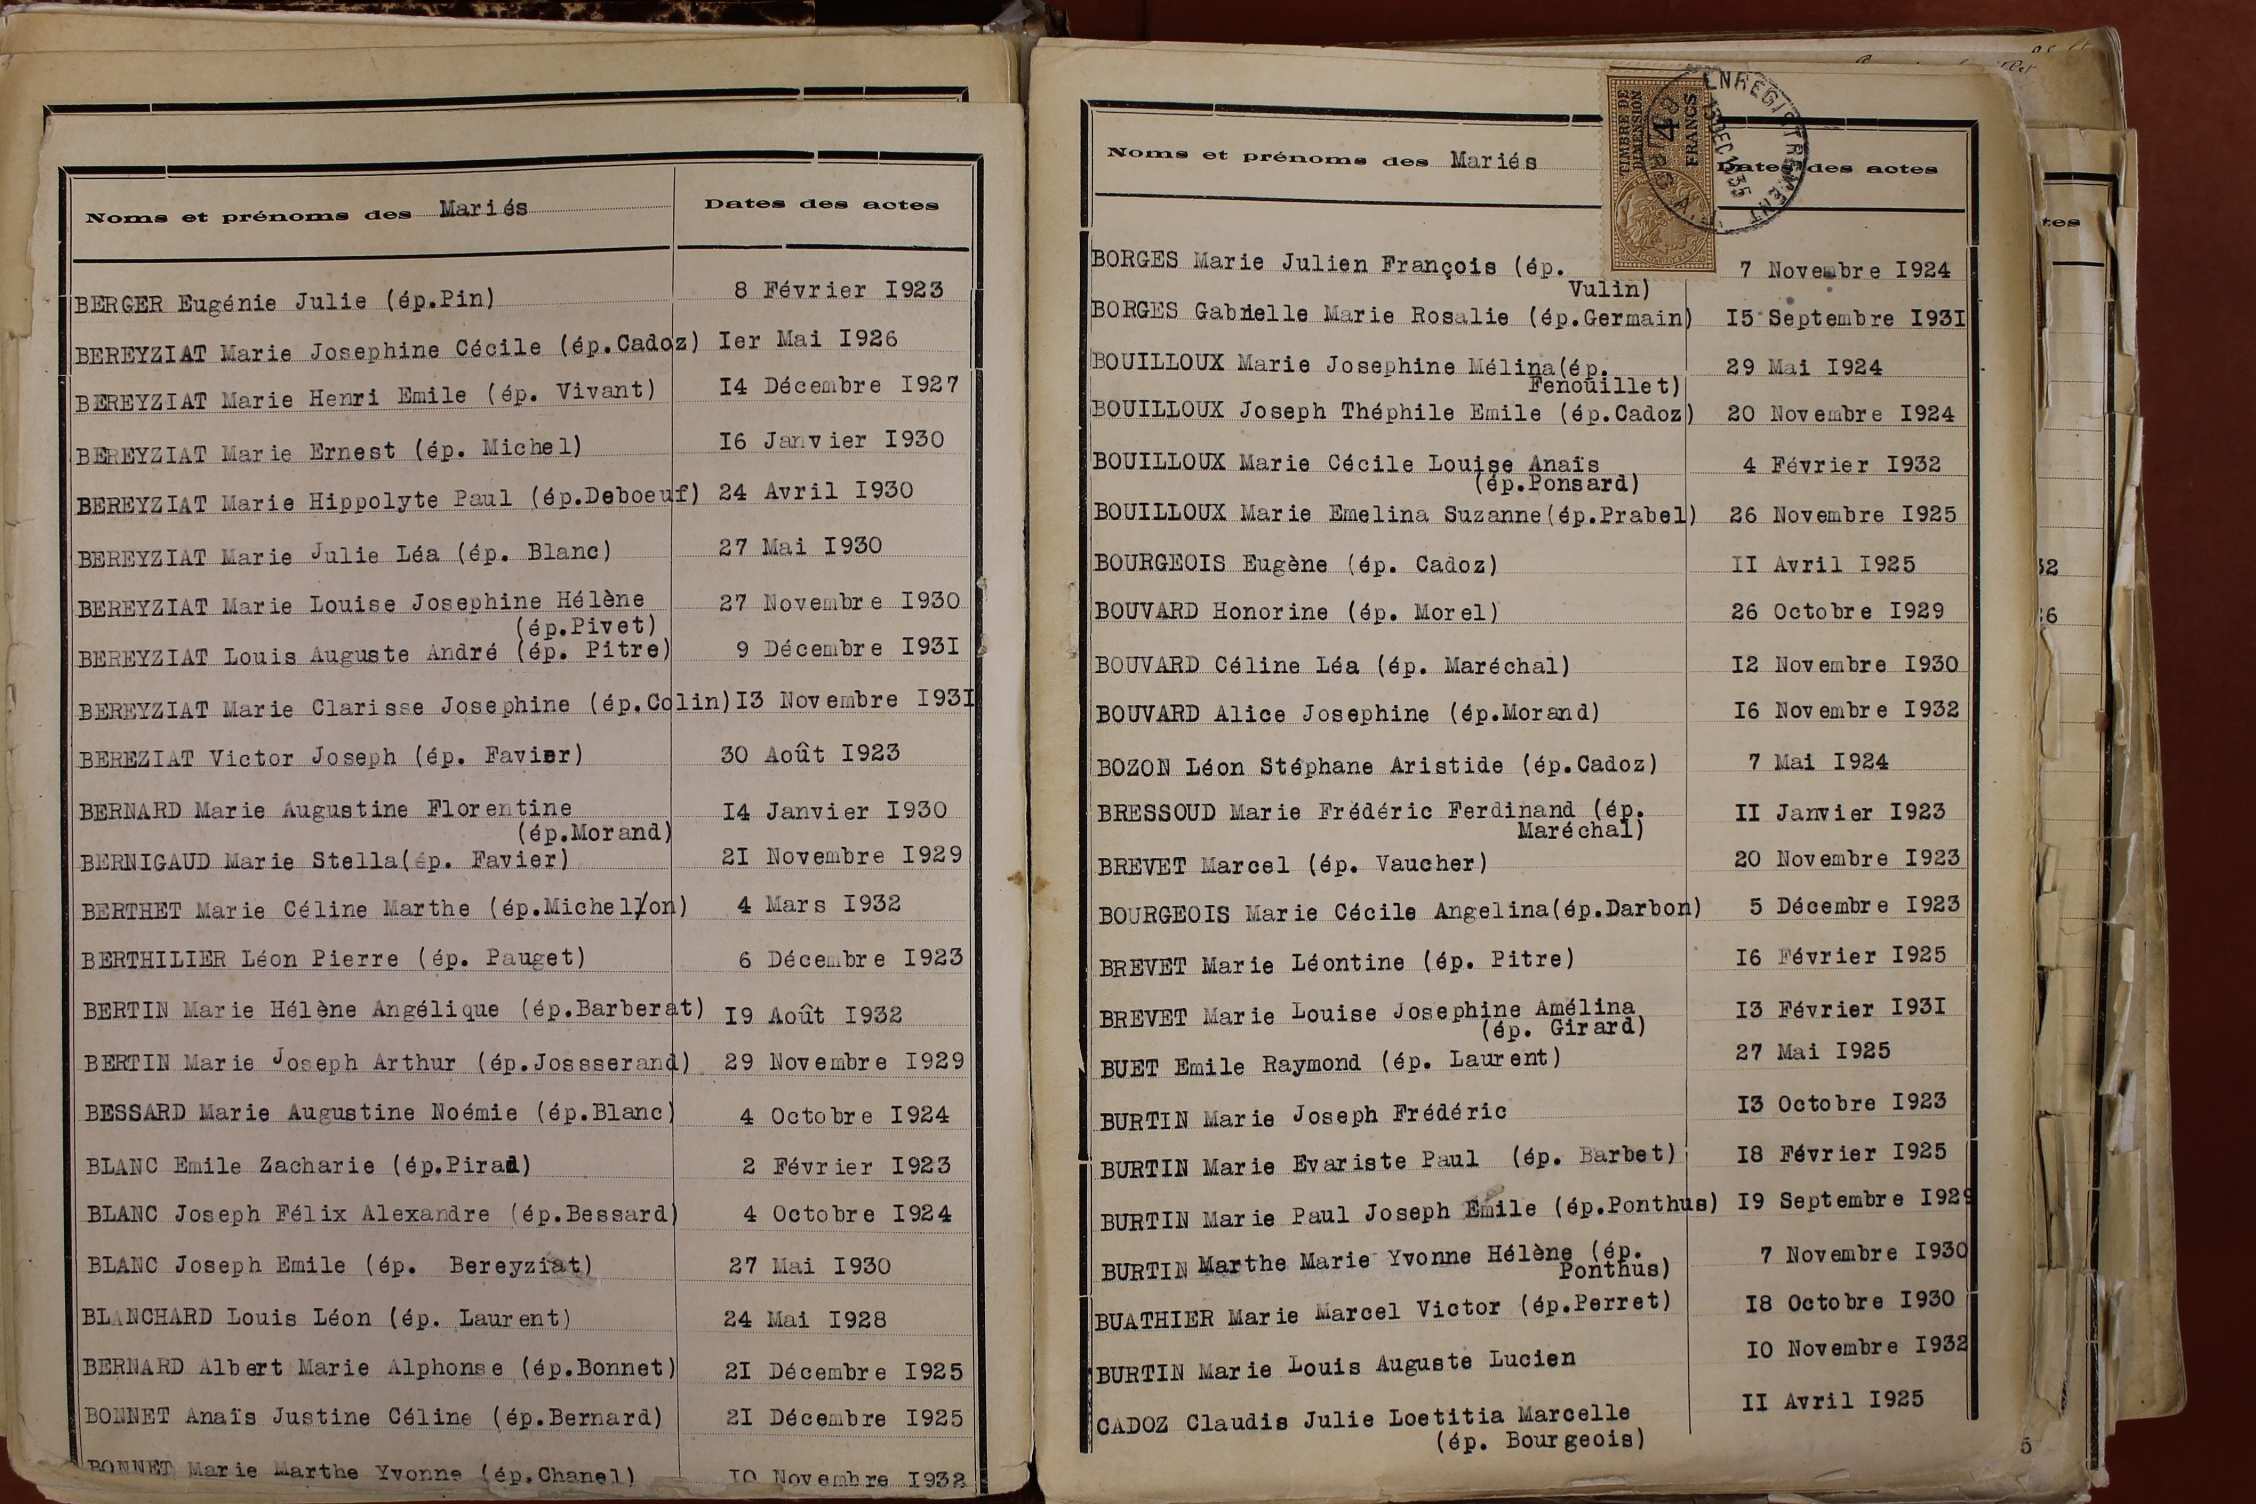 Noms et prénoms des Mariés Dates des actes
BERGER Eugénie Julie (ép.Pin) 8 Février I923
BEREYZIAT Marie Josephine Cécile (ép.Cadoz) Ier Mai I926
BEREYZIAT Marie Henri Emile (ép. Vivant) I4 Décembre I927
BEREYZIAT Marie Ernest (ép. Michel) I6 Janvier I930
BEREYZIAT Marie Hippolyte Paul (ép.Deboeuf) 24 Avril I930
BEREYZIAT Marie Julie Léa (ép. Blanc) 27 Mai I930
BEREYZIAT Marie Louise Josephine Hélène 27 Novembre I930
(ép.Pivet)
BEREYZIAT Louis Auguste André (ép. Pitre) 9 Décembre I93I
BEREYZIAT Marie Clarisse Josephine (ép.Colin) I3 Novembre I93I
BEREZIAT Victor Joseph (ép. Favier) 30 Août I923
BERNARD Marie Augustine Florentine I4 Janvier I930
(ép.Morand)
BERNIGAUD Marie Stella(ép. Favier) 2I Novembre I929
BERTHET Marie Céline Marthe (ép.Michellon) 4 Mars I932
BERTHILIER Léon Pierre (ép. Pauget) 6 Décembre I923
BERTIN Marie Hélène Angélique (ép.Barberat) I9 Août I932
BERTIN Marie Joseph Arthur (ép.Jossserand) 29 Novembre I929
BESSARD Marie Augustine Noémie (ép.Blanc) 4 Octobre I924
BLANC Emile Zacharie (ép.Pirad) 2 Février I923
BLANC Joseph Félix Alexandre (ép.Bessard) 4 Octobre I924
BLANC Joseph Emile (ép. Bereyziat) 27 Mai I930
BLANCHARD Louis Léon (ép. Laurent) 24 Mai I928
BERNARD Albert Marie Alphonse (ép.Bonnet) 2I Décembre I925
BONNET Anaïs Justine Céline (ép.Bernard) 2I Décembre I925
BONNET Marie Marthe Yvonne (ép.Chanel) IO Novembre I932
Noms et prénoms des Mariés Dates des actes
TIMBRE DE
DIMENSION
4
FRANCS
ENREGISTREMENT
DEC 1935
BORGES Marie Julien François (ép. 7 Novembre I924
Vulin)
BORGES Gabrielle Marie Rosalie (ép.Germain) I5 Septembre I93I
BOUILLOUX Marie Josephine Mélina(ép. 29 Mai I924
Fenouillet)
BOUILLOUX Joseph Théphile Emile (ép.Cadoz) 20 Novembre I924
BOUILLOUX Marie Cécile Louise Anaïs 4 Février I932
(ép.Ponsard)
BOUILLOUX Marie Emelina Suzanne(ép.Prabel) 26 Novembre I925
BOURGEOIS Eugène (ép. Cadoz) II Avril I925
BOUVARD Honorine (ép. Morel) 26 Octobre I929
BOUVARD Céline Léa (ép. Maréchal) I2 Novembre I930
BOUVARD Alice Josephine (ép.Morand) I6 Novembre I932
BOZON Léon Stéphane Aristide (ép.Cadoz) 7 Mai I924
BRESSOUD Marie Frédéric Ferdinand (ép. II Janvier I923
Maréchal)
BREVET Marcel (ép. Vaucher) 20 Novembre I923
BOURGEOIS Marie Cécile Angelina(ép.Darbon) 5 Décembre I923
BREVET Marie Léontine (ép. Pitre) I6 Février I925
BREVET Marie Louise Josephine Amélina I3 Février I93I
(ép. Girard)
BUET Emile Raymond (ép. Laurent) 27 Mai I925
BURTIN Marie Joseph Frédéric I3 Octobre I923
BURTIN Marie Evariste Paul (ép. Barbet) I8 Février I925
BURTIN Marie Paul Joseph Emile (ép.Ponthus) I9 Septembre I929
BURTIN Marthe Marie Yvonne Hélène (ép. 7 Novembre I930
Ponthus)
BUATHIER Marie Marcel Victor (ép.Perret) I8 Octobre I930
BURTIN Marie Louis Auguste Lucien IO Novembre I932
CADOZ Claudis Julie Loetitia Marcelle II Avril I925
(ép. Bourgeois)
5